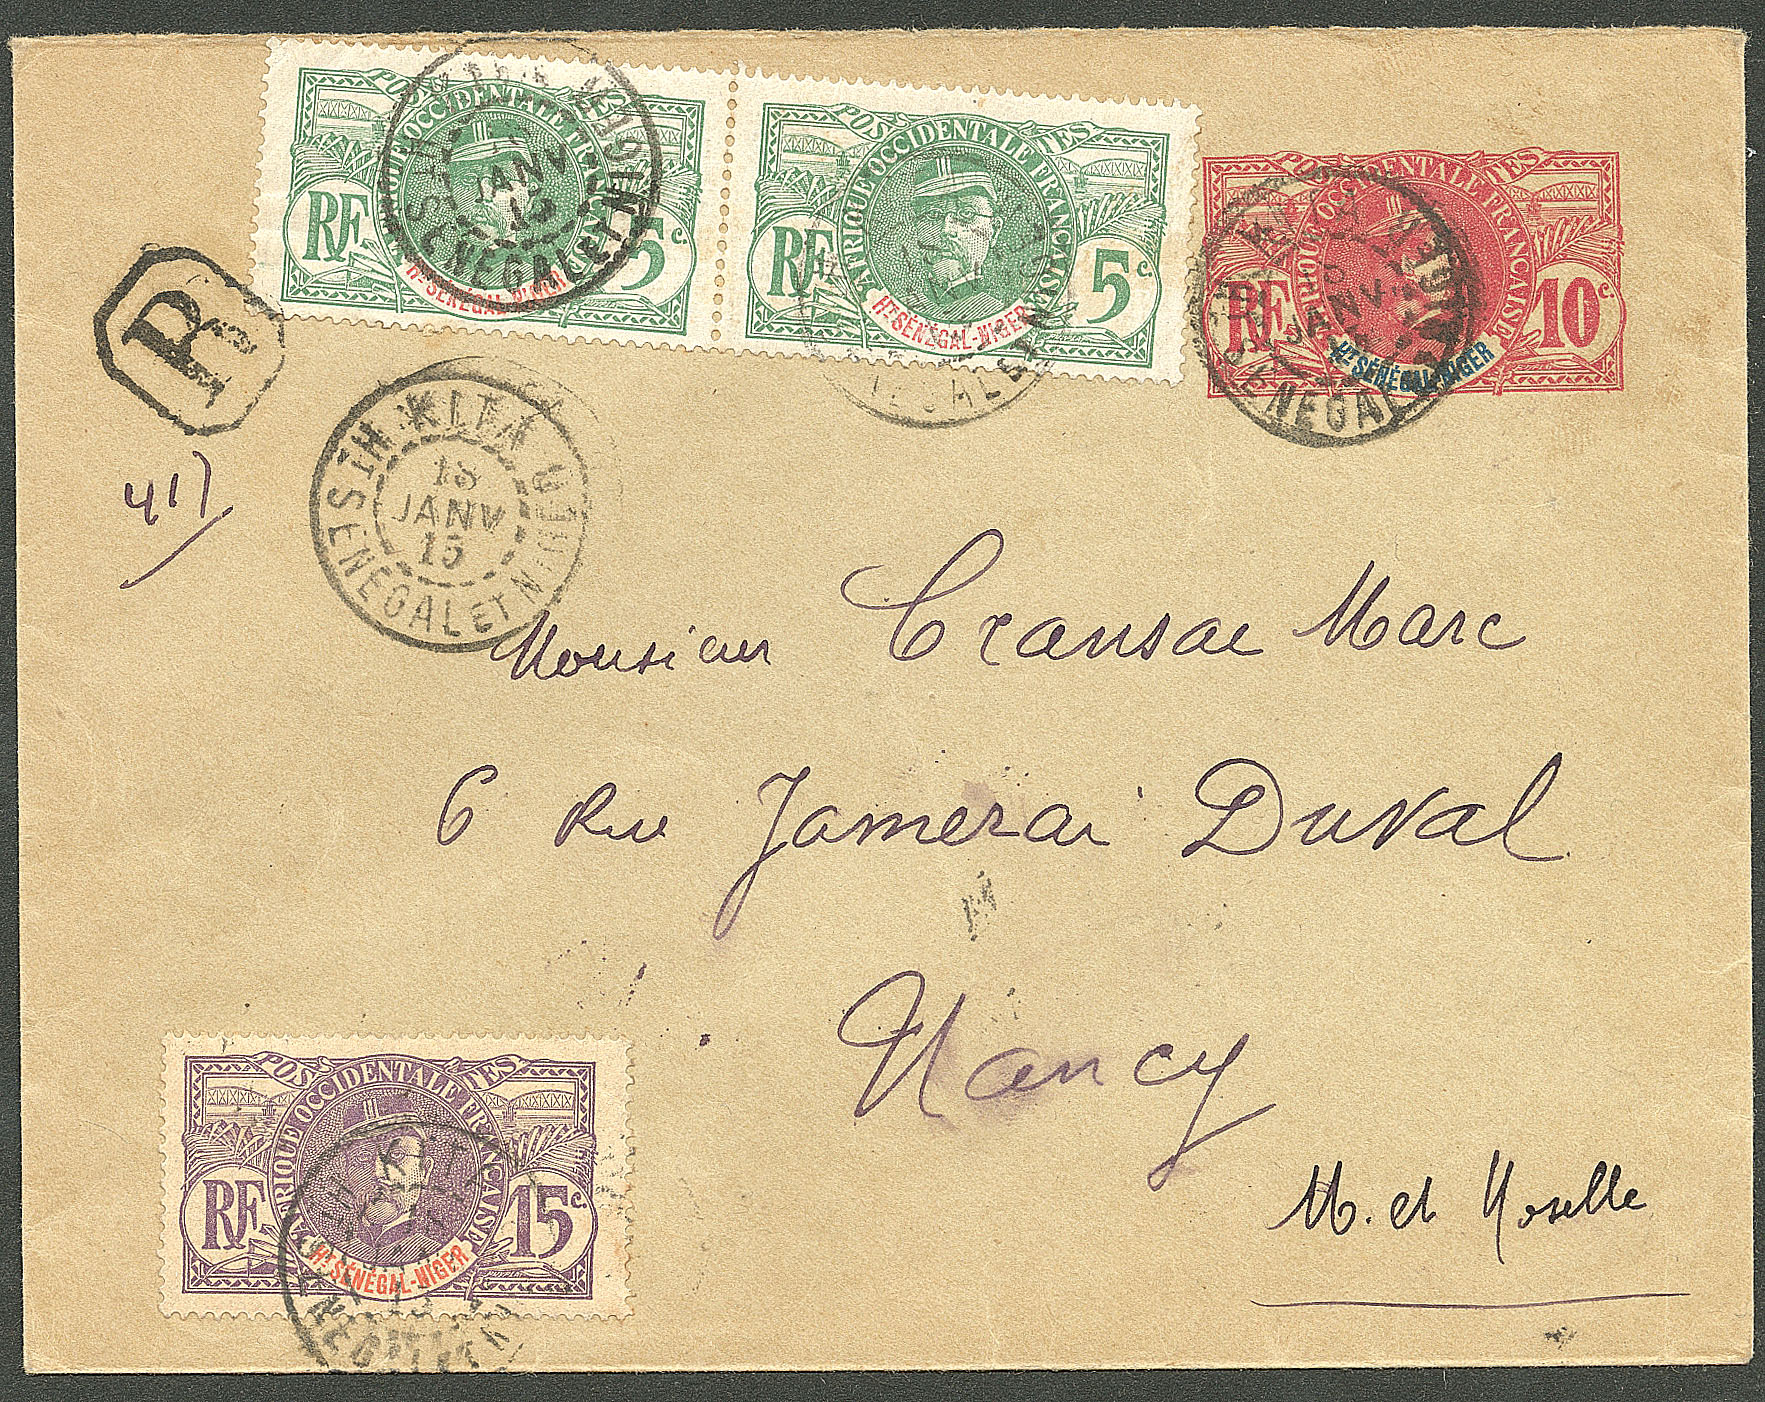 POSTES
AFRIQUE OCCIDENTALE FRANÇAISE
RF 5c.
Ht SÉNÉGAL-NIGER
POSTES
AFRIQUE OCCIDENTALE FRANÇAISE
RF 5c.
Ht SÉNÉGAL-NIGER
POSTES
AFRIQUE OCCIDENTALE FRANÇAISE
RF 10c.
Ht SÉNÉGAL-NIGER
JANV
R
417
KIFA
JANV
15
SENEGAL ET NIGER
Monsieur Cransac Marc
6 Rue Jamerai Duval
Nancy
M. et Moselle
POSTES
AFRIQUE OCCIDENTALE FRANÇAISE
RF 15c.
Ht SÉNÉGAL-NIGER